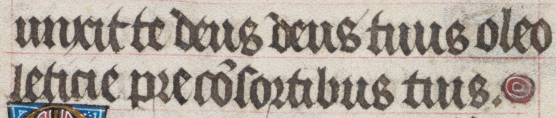 unxit te deus deus tuus oleo
leticie pre cõsortibus tuis.